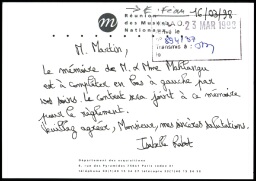 → E. Féau 16/03/98
Réunion
des Musées
Nationaux
23 MAR 1998
M. Martin,
Le mémoire de M. & Mme Mahiangu
est à compléter en bas à gauche par
vos soins. Le contrat sera joint à ce mémoire
pour le règlement.
Veuillez agréer, Monsieur, mes sincères salutations.
Isabelle
Département des acquisitions